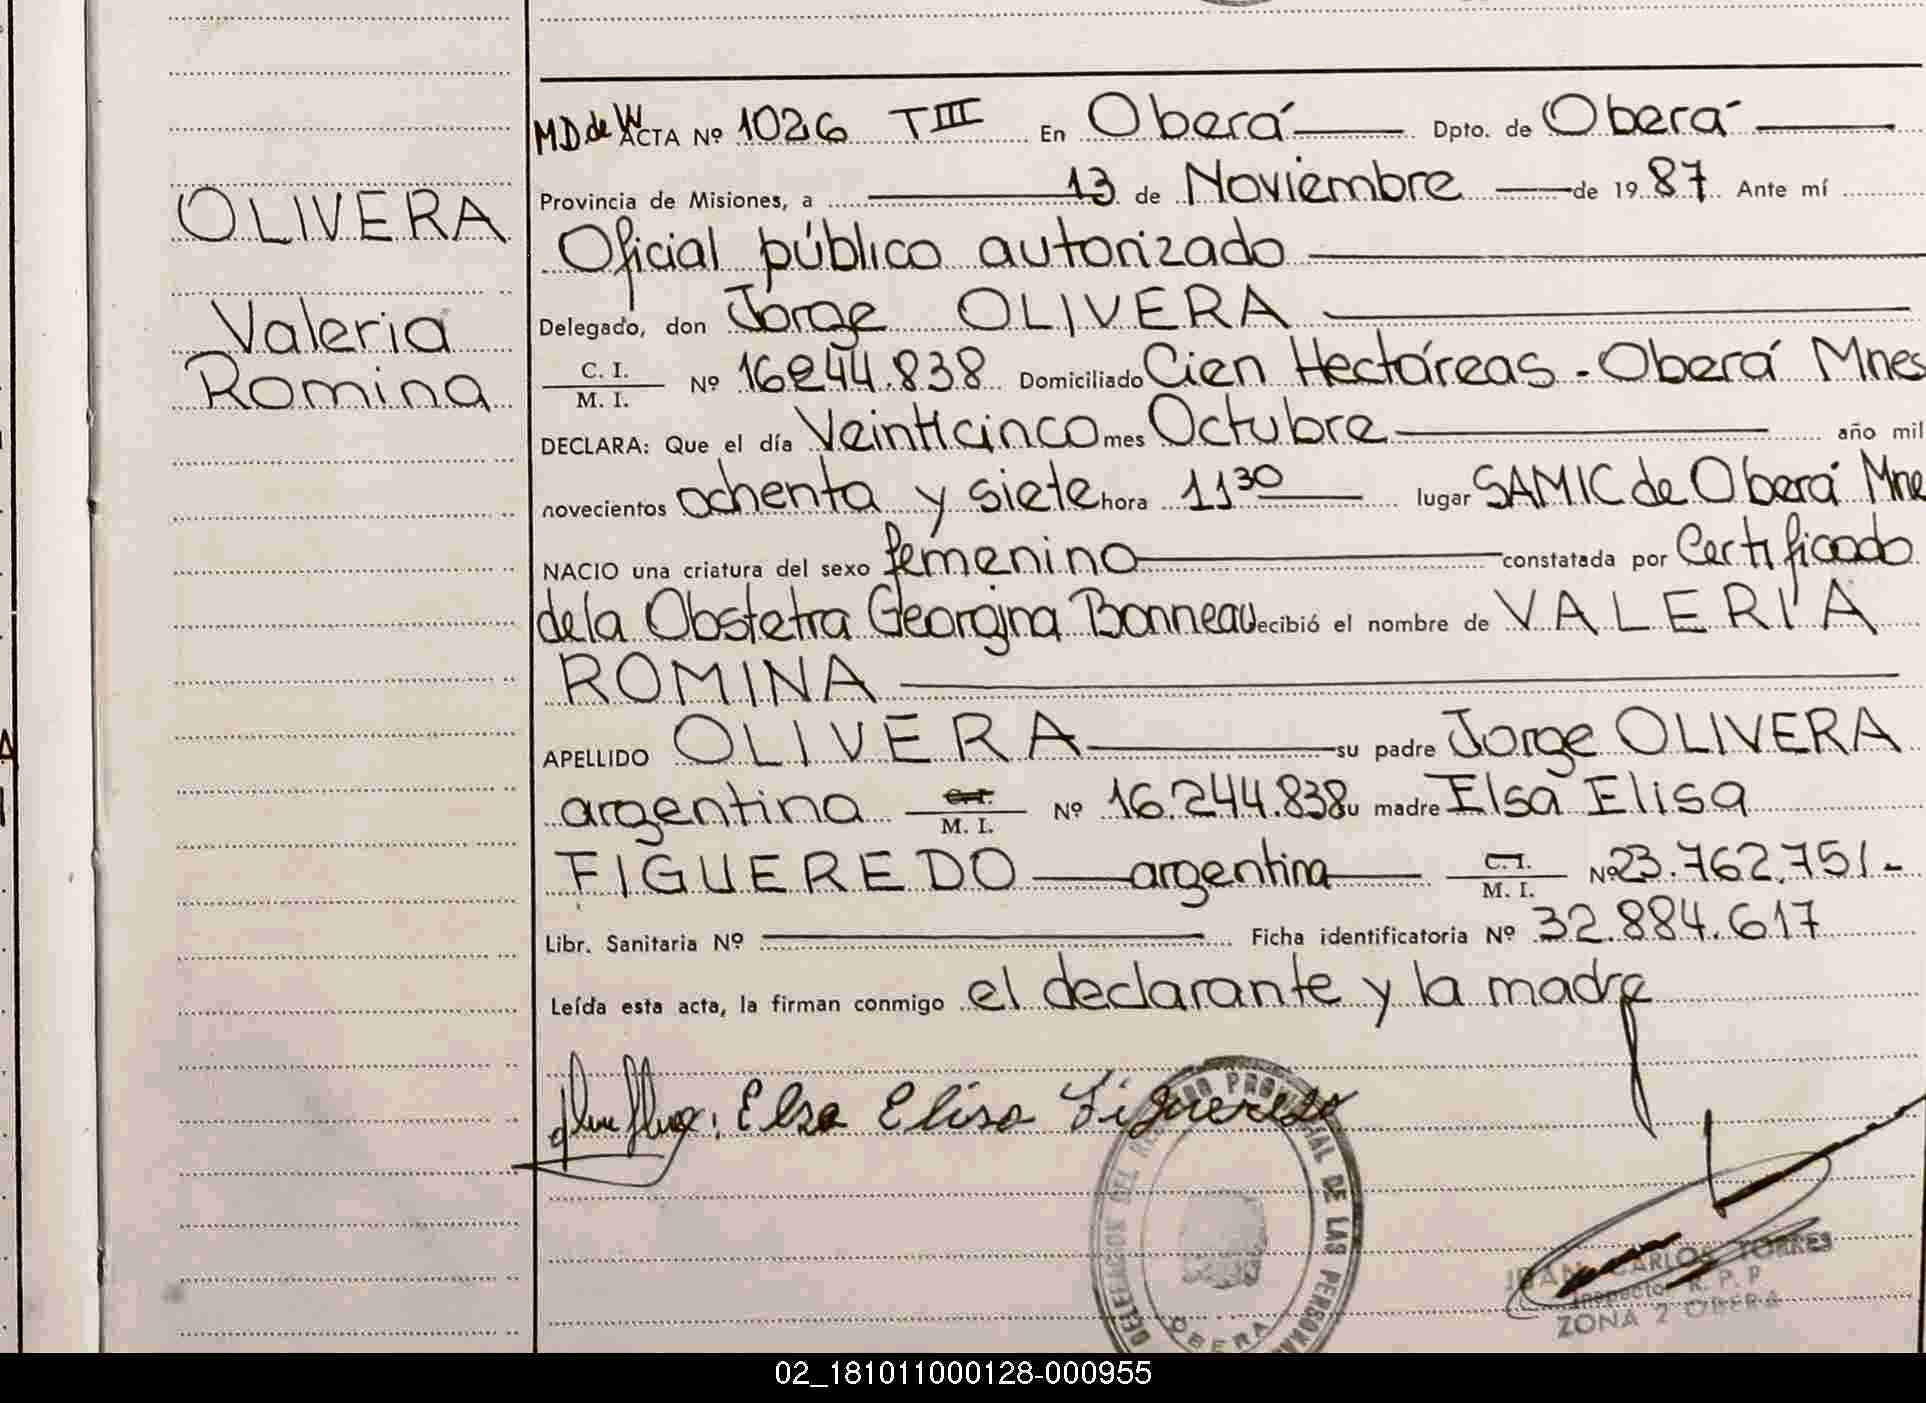 OLIVERA
Valeria
Romina
MD de W ACTA Nº 1026 TIII En Oberá Dpto. de Oberá
Provincia de Misiones, a 13 de Noviembre de 1987 Ante mí
Oficial público autorizado
Delegado, don Jorge OLIVERA
C. I. / M. I. Nº 16244.838 Domiciliado Cien Hectáreas - Oberá Mnes
DECLARA: Que el día Veinticinco mes Octubre año mil
novecientos ochenta y siete hora 11 30 lugar SAMIC de Oberá Mne
NACIO una criatura del sexo femenino constatada por Certificado
de la Obstetra Georgina Bonneau ecibió el nombre de VALERIA
ROMINA
APELLIDO OLIVERA su padre Jorge OLIVERA
argentina C.I. / M. I. Nº 16.244.838 u madre Elsa Elisa
FIGUEREDO argentina C.I. / M. I. Nº 23.762.751.-
Libr. Sanitaria Nº Ficha identificatoria Nº 32.884.617
Leída esta acta, la firman conmigo el declarante y la madre
Elsa Elisa Figueredo
DELEGACION DEL PROVINCIAL DE LAS PERSONAS
OBERA
JUAN CARLOS TORRES
Inspector R. P. P.
ZONA 2 OBERA
02_181011000128-000955